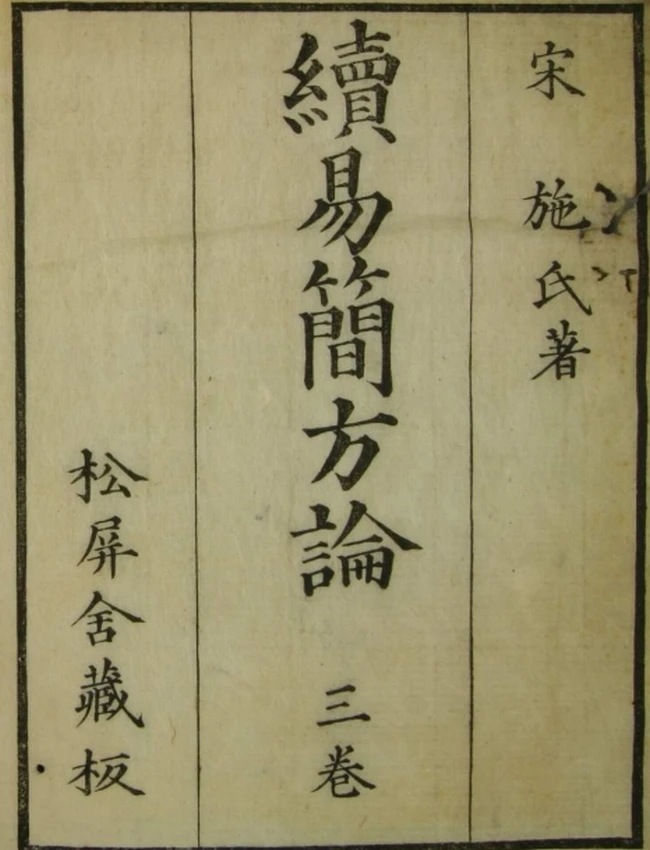 宋 施氏著
續易簡方論 三卷
松屏舍藏板